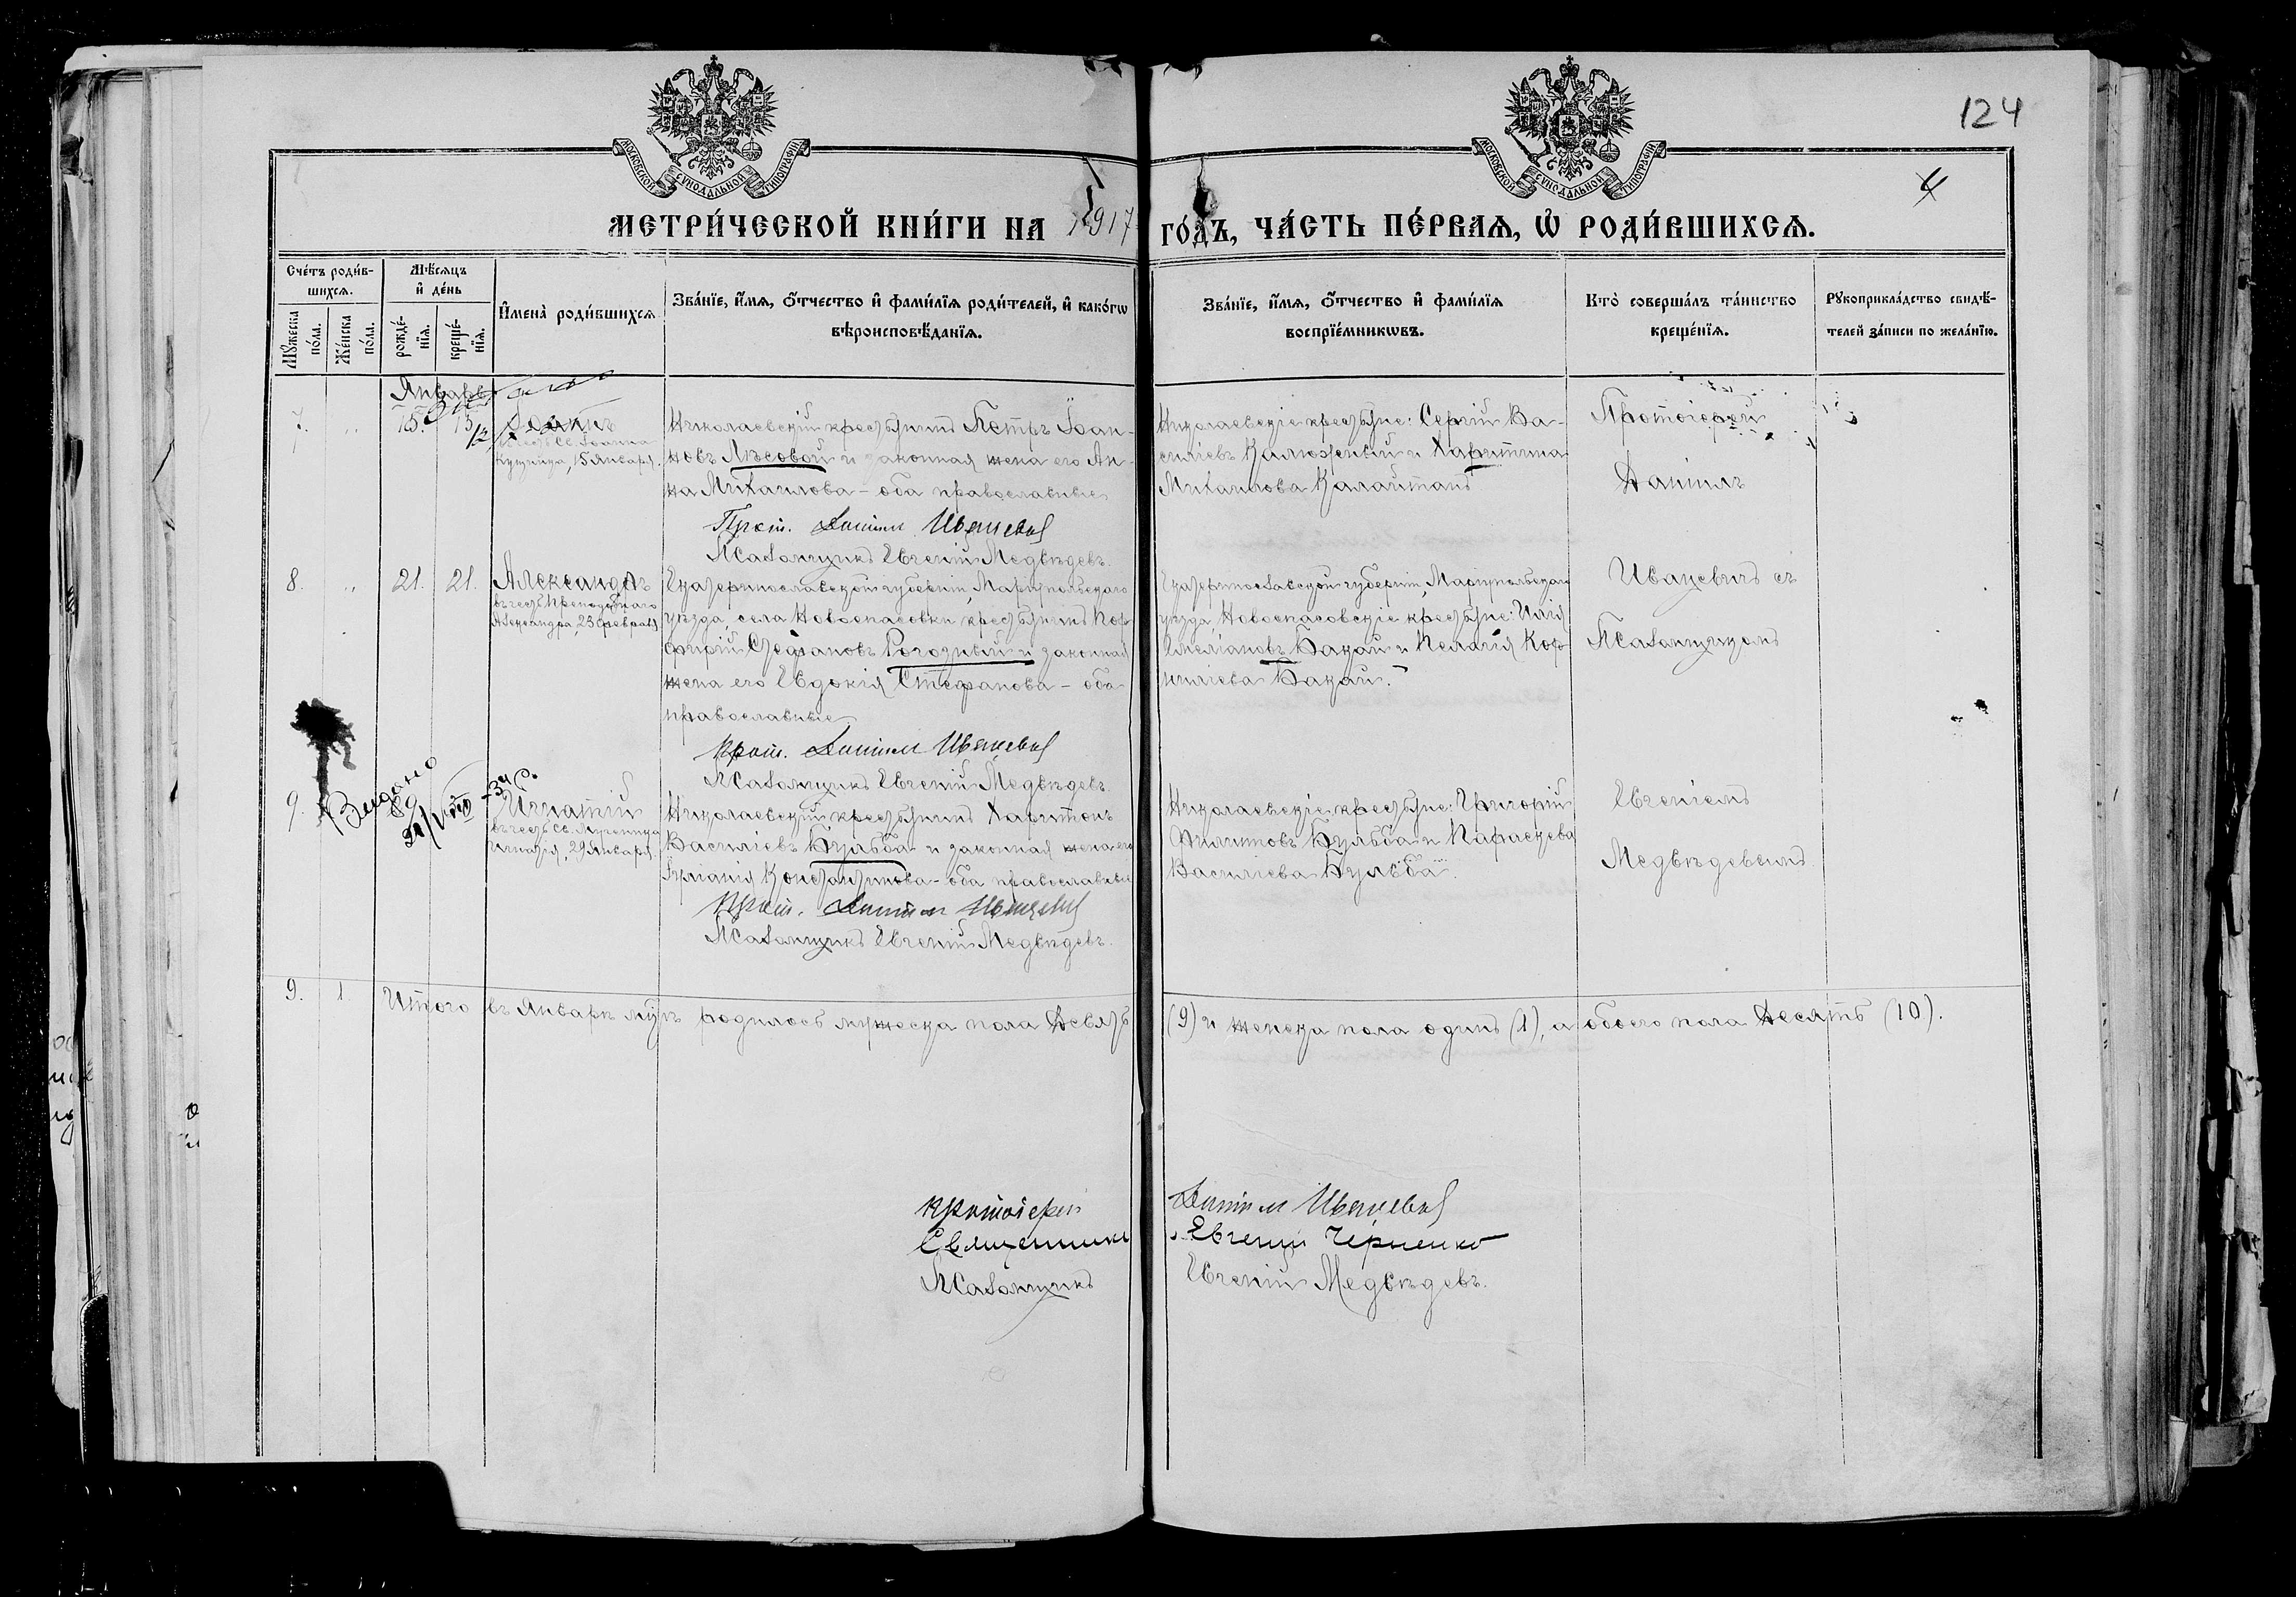 124
4
МОСКОВСКОЙ СѴНОДАЛЬНОЙ ТИПОГРАФІИ
МОСКОВСКОЙ СѴНОДАЛЬНОЙ ТИПОГРАФІИ
МЕТРИ́ЧЕСКОЙ КНИ́ГИ НА 1917 ГО́ДЪ, ЧА́СТЬ ПЕ́РВАЯ, Ѿ РОДИ́ВШИХСЯ.
Сче́тъ роди́в-
шихся.
Мѣ́сяцъ
и҆ де́нь
Мꙋжеска по́ла.
Же́нска по́ла.
рожде́-нїя.
креще́-нїя.
И҆мена̀ роди́вшихся
Зва́нїе, и҆́мя, ѻ҆́тчество и҆ фами́лїя роди́телей, и҆ како́гѡ
вѣроисповѣ́данїя.
Зва́нїе, и҆́мя, ѻ҆́тчество и҆ фами́лїя
воспрїе́мникѡвъ.
Кто̀ соверша́лъ та́инство
креще́нїя.
Рꙋкоприкла́дство свидѣ́-
телей за́писи по жела́нїю.
Январь
7. „ 15. 15
Кущника, 15 Января.
Николаевскій крестьянинъ Петръ Іоан-
новъ Лѣсовой и законная жена его Ан-
на Михаилова – оба православные
Прот. Даніил Иваневич
Псаломщикъ Евгеній Медвѣдевъ.
Николаевскіе крестьяне: Сергій Ва-
силіевъ Калюжный и Харитина
Михаилова Калайтанъ
Протоіерей
Даніилъ
8. „ 21. 21. Александръ
въ честь Преподобнаго
Александра, 23 февраля
Екатеринославской губерніи, Маріупольскаго
уѣзда, села Новоспасовки крестьянинъ Пор-
фирій Стефановъ Рогозный и законная
жена его Евдокія Стефанова – оба
православные
Прот. Даніил Иваневич
Псаломщикъ Евгеній Медвѣдевъ.
Екатеринославской губерніи, Маріупольскаго
уѣзда, Новоспасовскіе крестьяне: Илія
Емеліановъ Бакай и Пелагія Кор-
ниліева Бакай.
Иваневичъ съ
Псаломщикомъ
9. Выдано
Игнатій
въ честь Св. Мученика
Игнатія, 29 Января.
Николаевскій крестьянинъ Харитонъ
Василіевъ Бульба и законная жена его
Іуліанія Константинова – оба православные
Прот. Даніил Иваневич
Псаломщикъ Евгеній Медвѣдевъ.
Николаевскіе крестьяне: Григорій
Филипповъ Бульба и Параскева
Василіева Бульба.
Евгеніемъ
Медвѣдевымъ.
9. 1. Итого въ Январѣ мцѣ родилось мужеска пола девять (9) и женска пола одинъ (1), а обоего пола десять (10).
Протоіерей Даніил Иваневич
Священникъ Евгений Черненко
Псаломщикъ Евгеній Медвѣдевъ.